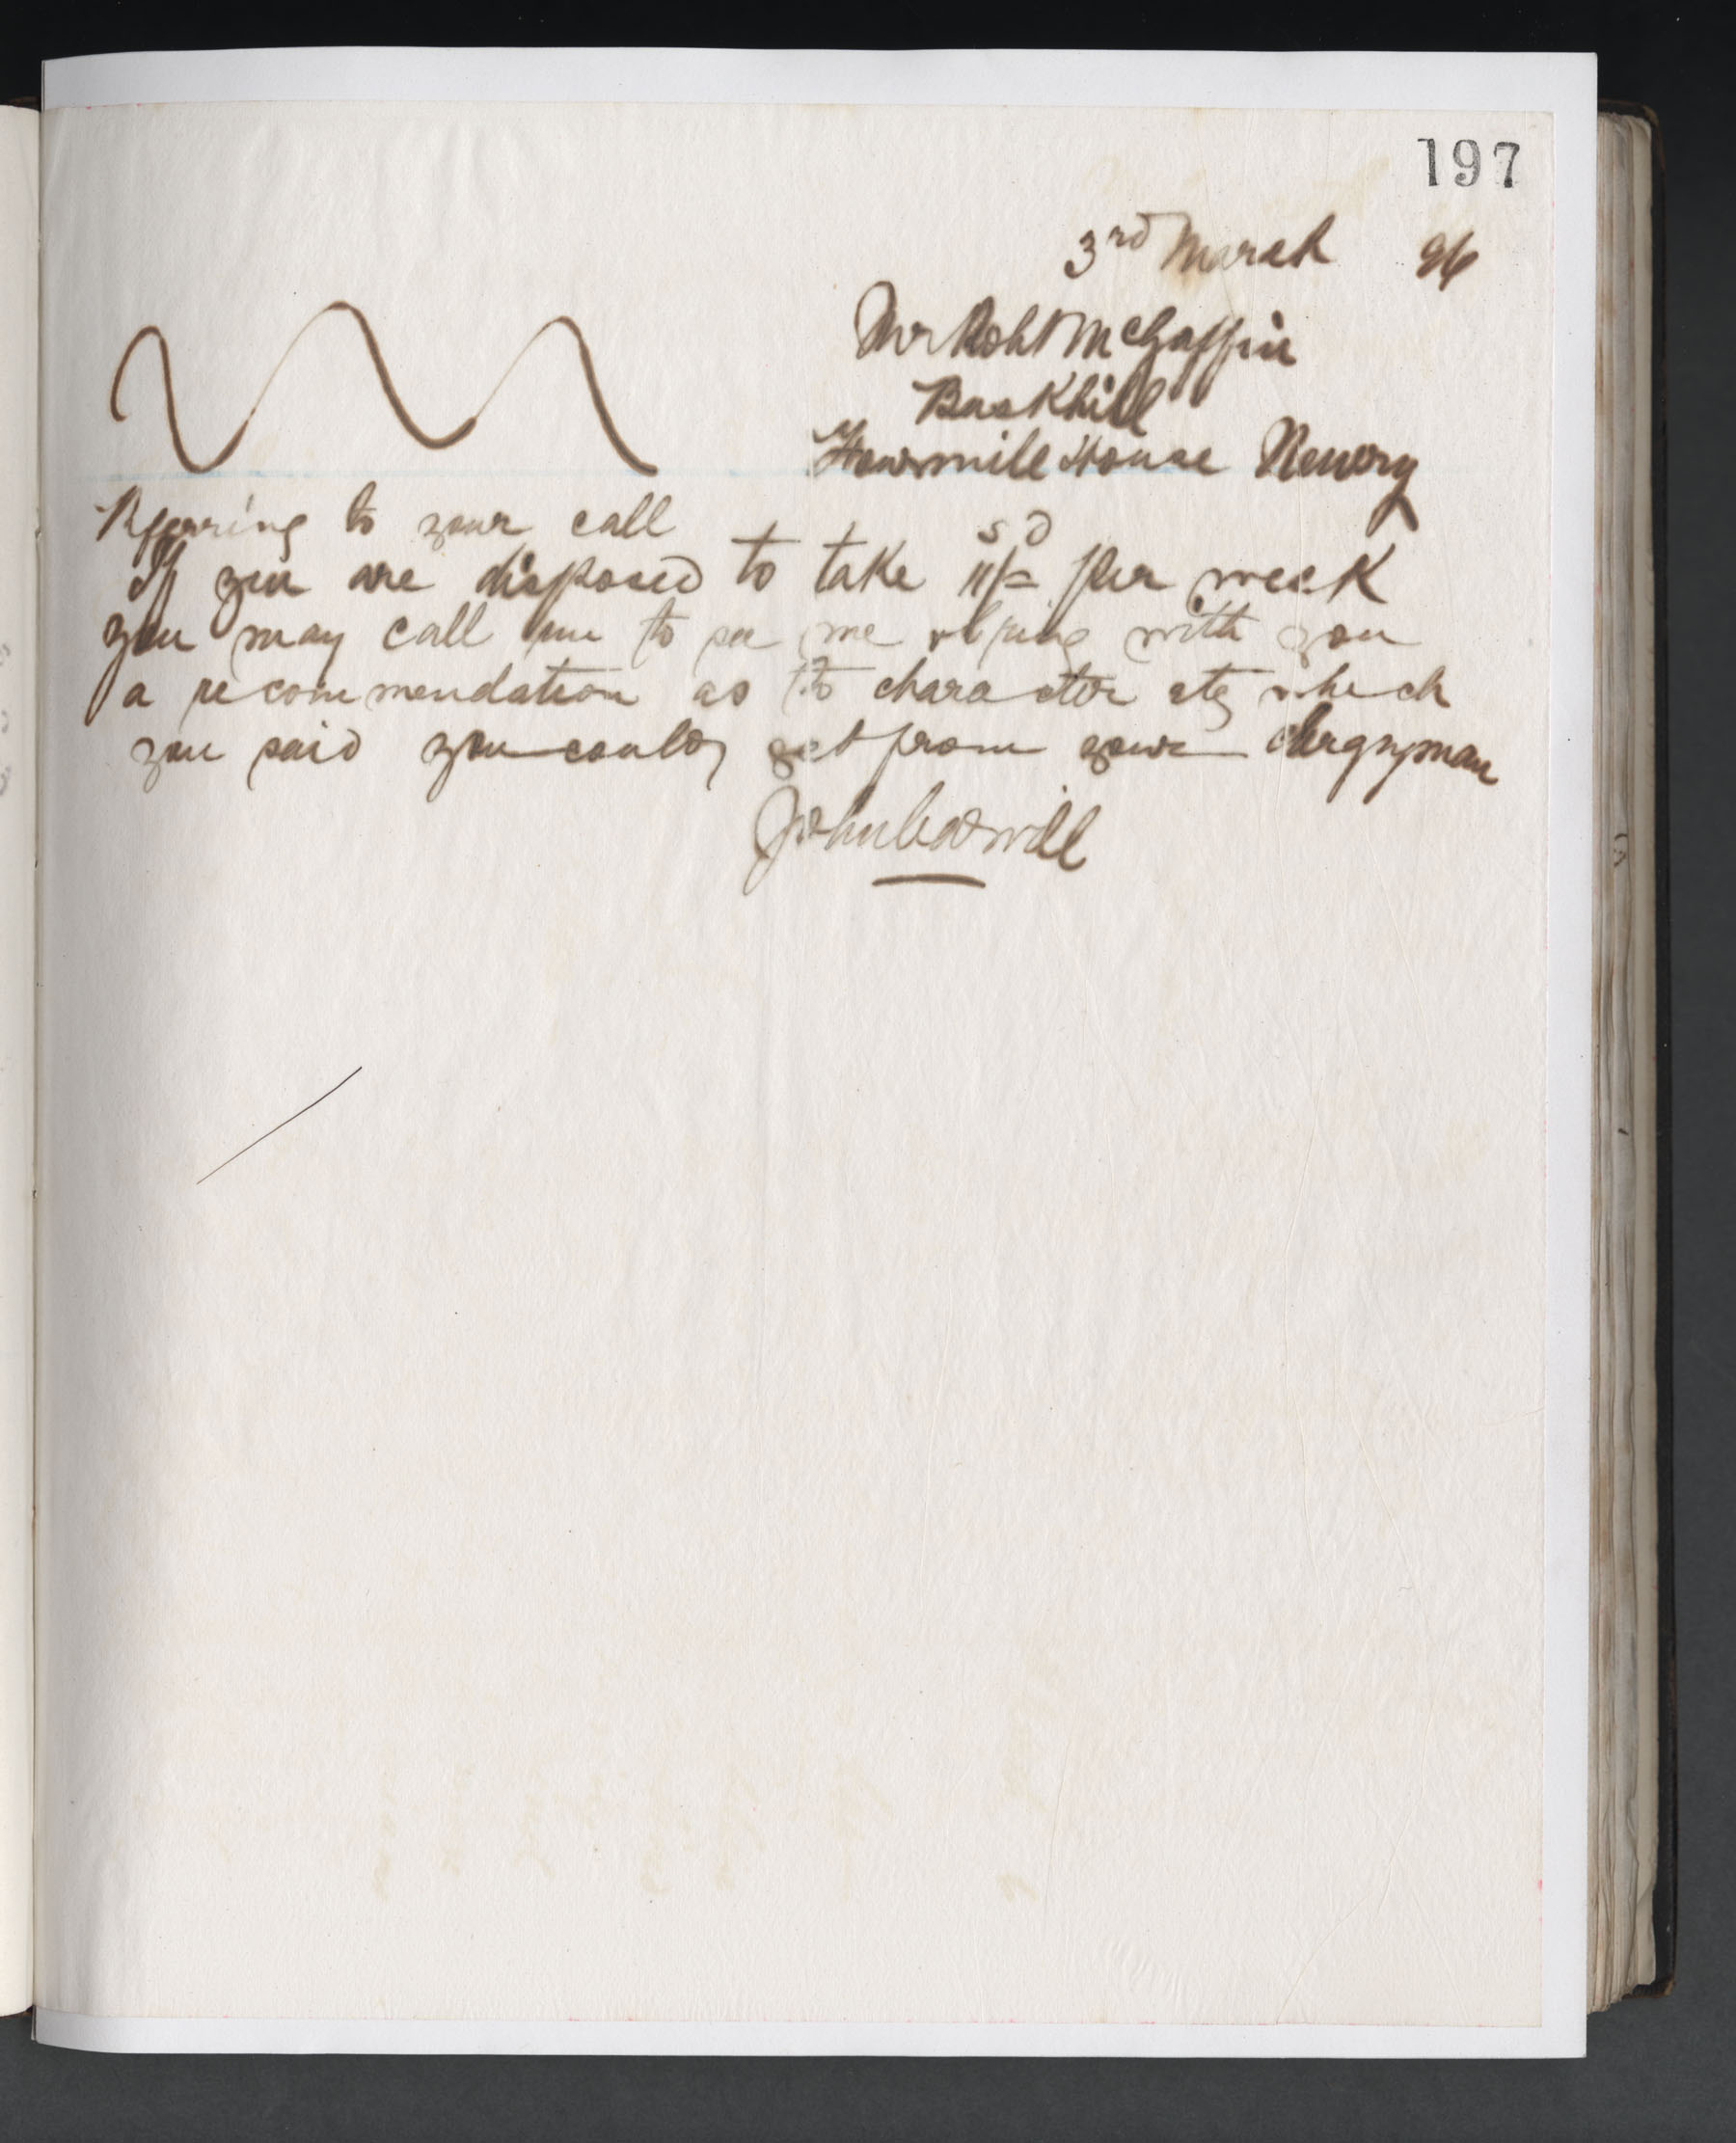 197
3rd March 96
Mr Robt McGaffin
Buskhill
Fourmile House Newry
Referring to your call
If you are disposed to take 11/= per week
you may call to see me & bring with you
a recommendation as to character etc which
you said you could get from your clergyman
John Cowdill